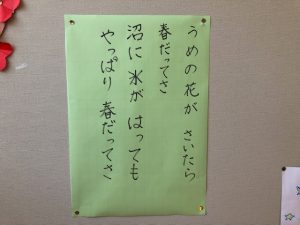 うめの花が さいたら
春だってさ
沼に 氷が はっても
やっぱり 春だってさ